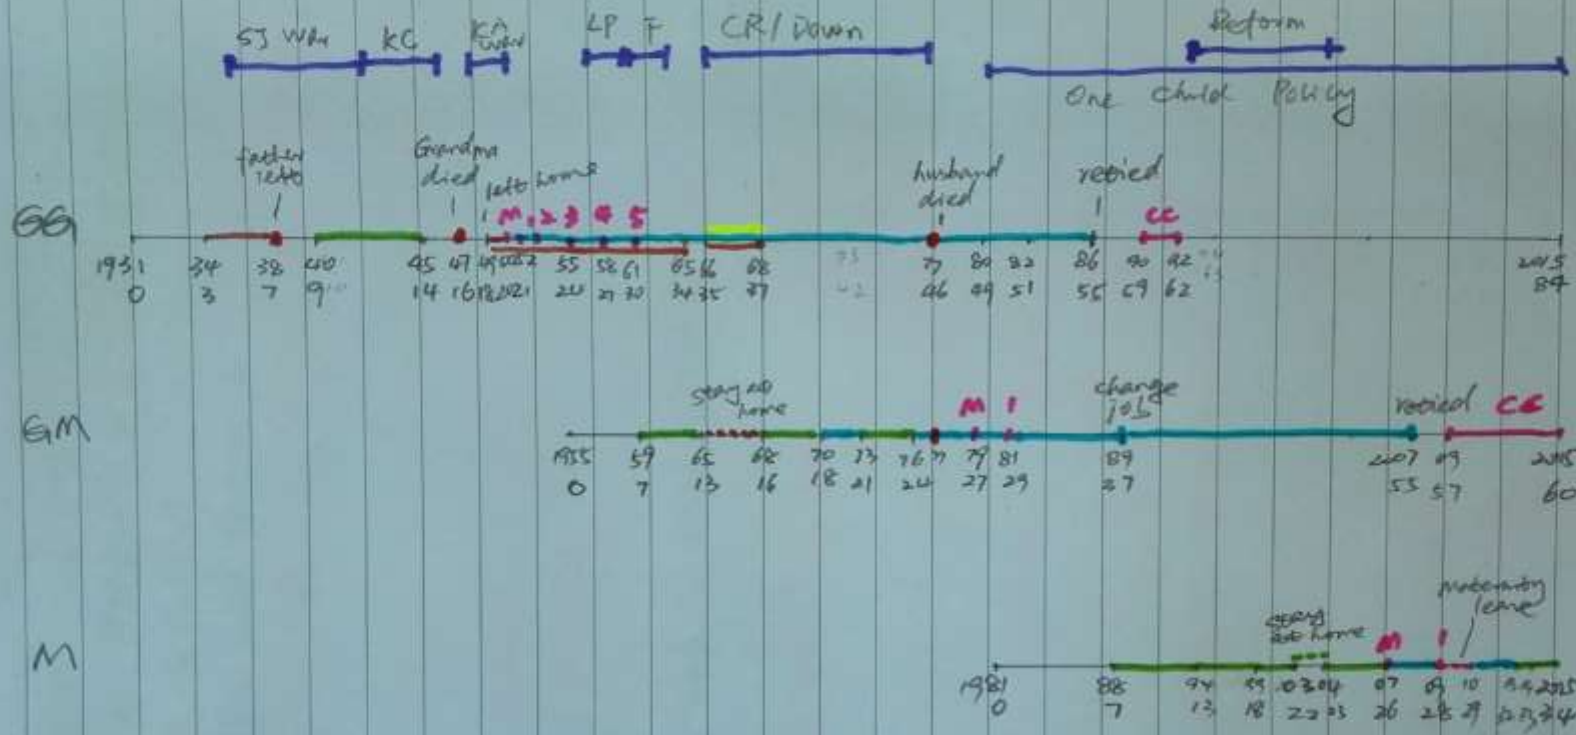 SJ War KC War LP F CR/Down Reform
One Child Policy
father left Grandma died left home husband died retied
GG M 1 2 3 4 5 CC
1931 34 38 40 45 47 49 55 58 61 65 66 68 77 80 82 86 90 92 2015
0 3 7 9 14 16 18 20 21 24 27 30 34 35 37 46 49 51 55 59 62 84
stay at home M 1 change job retied CC
GM
1955 59 65 68 70 73 76 77 79 81 89 2007 09 2015
0 7 13 16 18 21 24 27 29 37 55 57 60
stay at home M 1 maternity leave
M
1981 88 94 99 03 04 07 09 10 2015
0 7 13 18 22 23 26 28 29 34